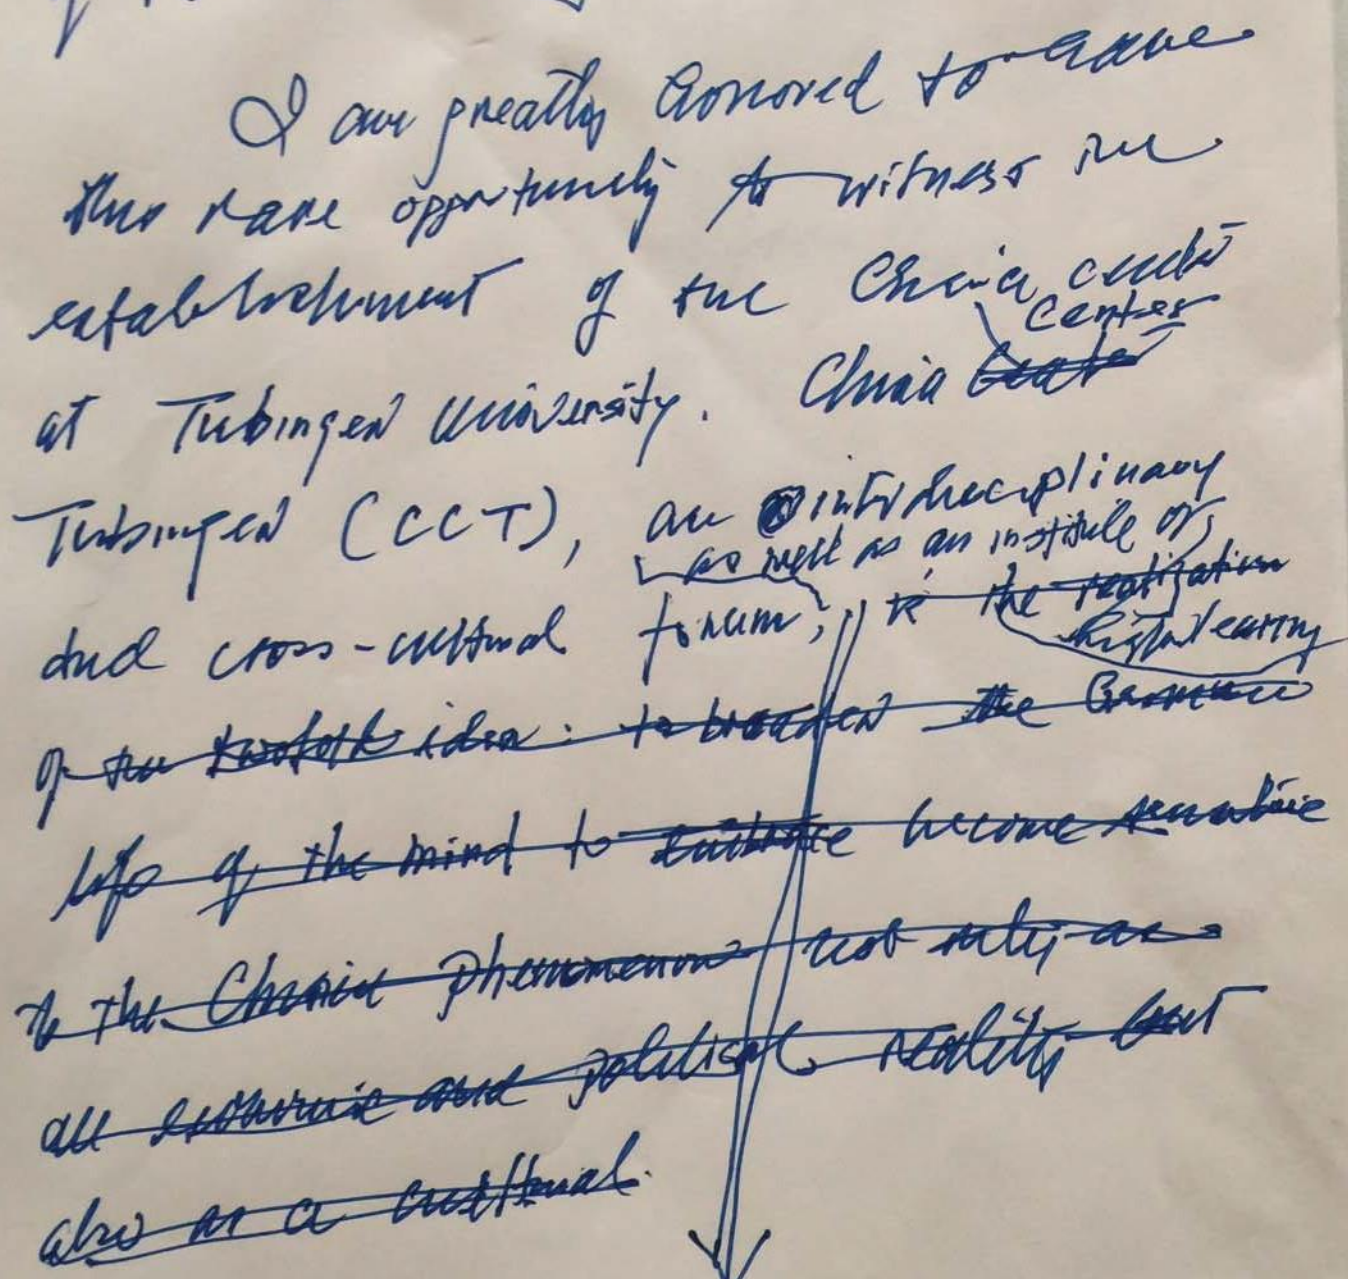 I am greatly honored to have
this rare opportunity to witness the
establishment of the China center
at Tubingen University. China center
Tubingen (CCT), an interdisciplinary
as well as an institute of
and cross-cultural forum, is the realization
higher learning
of the twofold idea: to broaden the German
life of the mind to become sensitive
to the China phenomenon not only as
an economic and political reality but
also as a cultural.